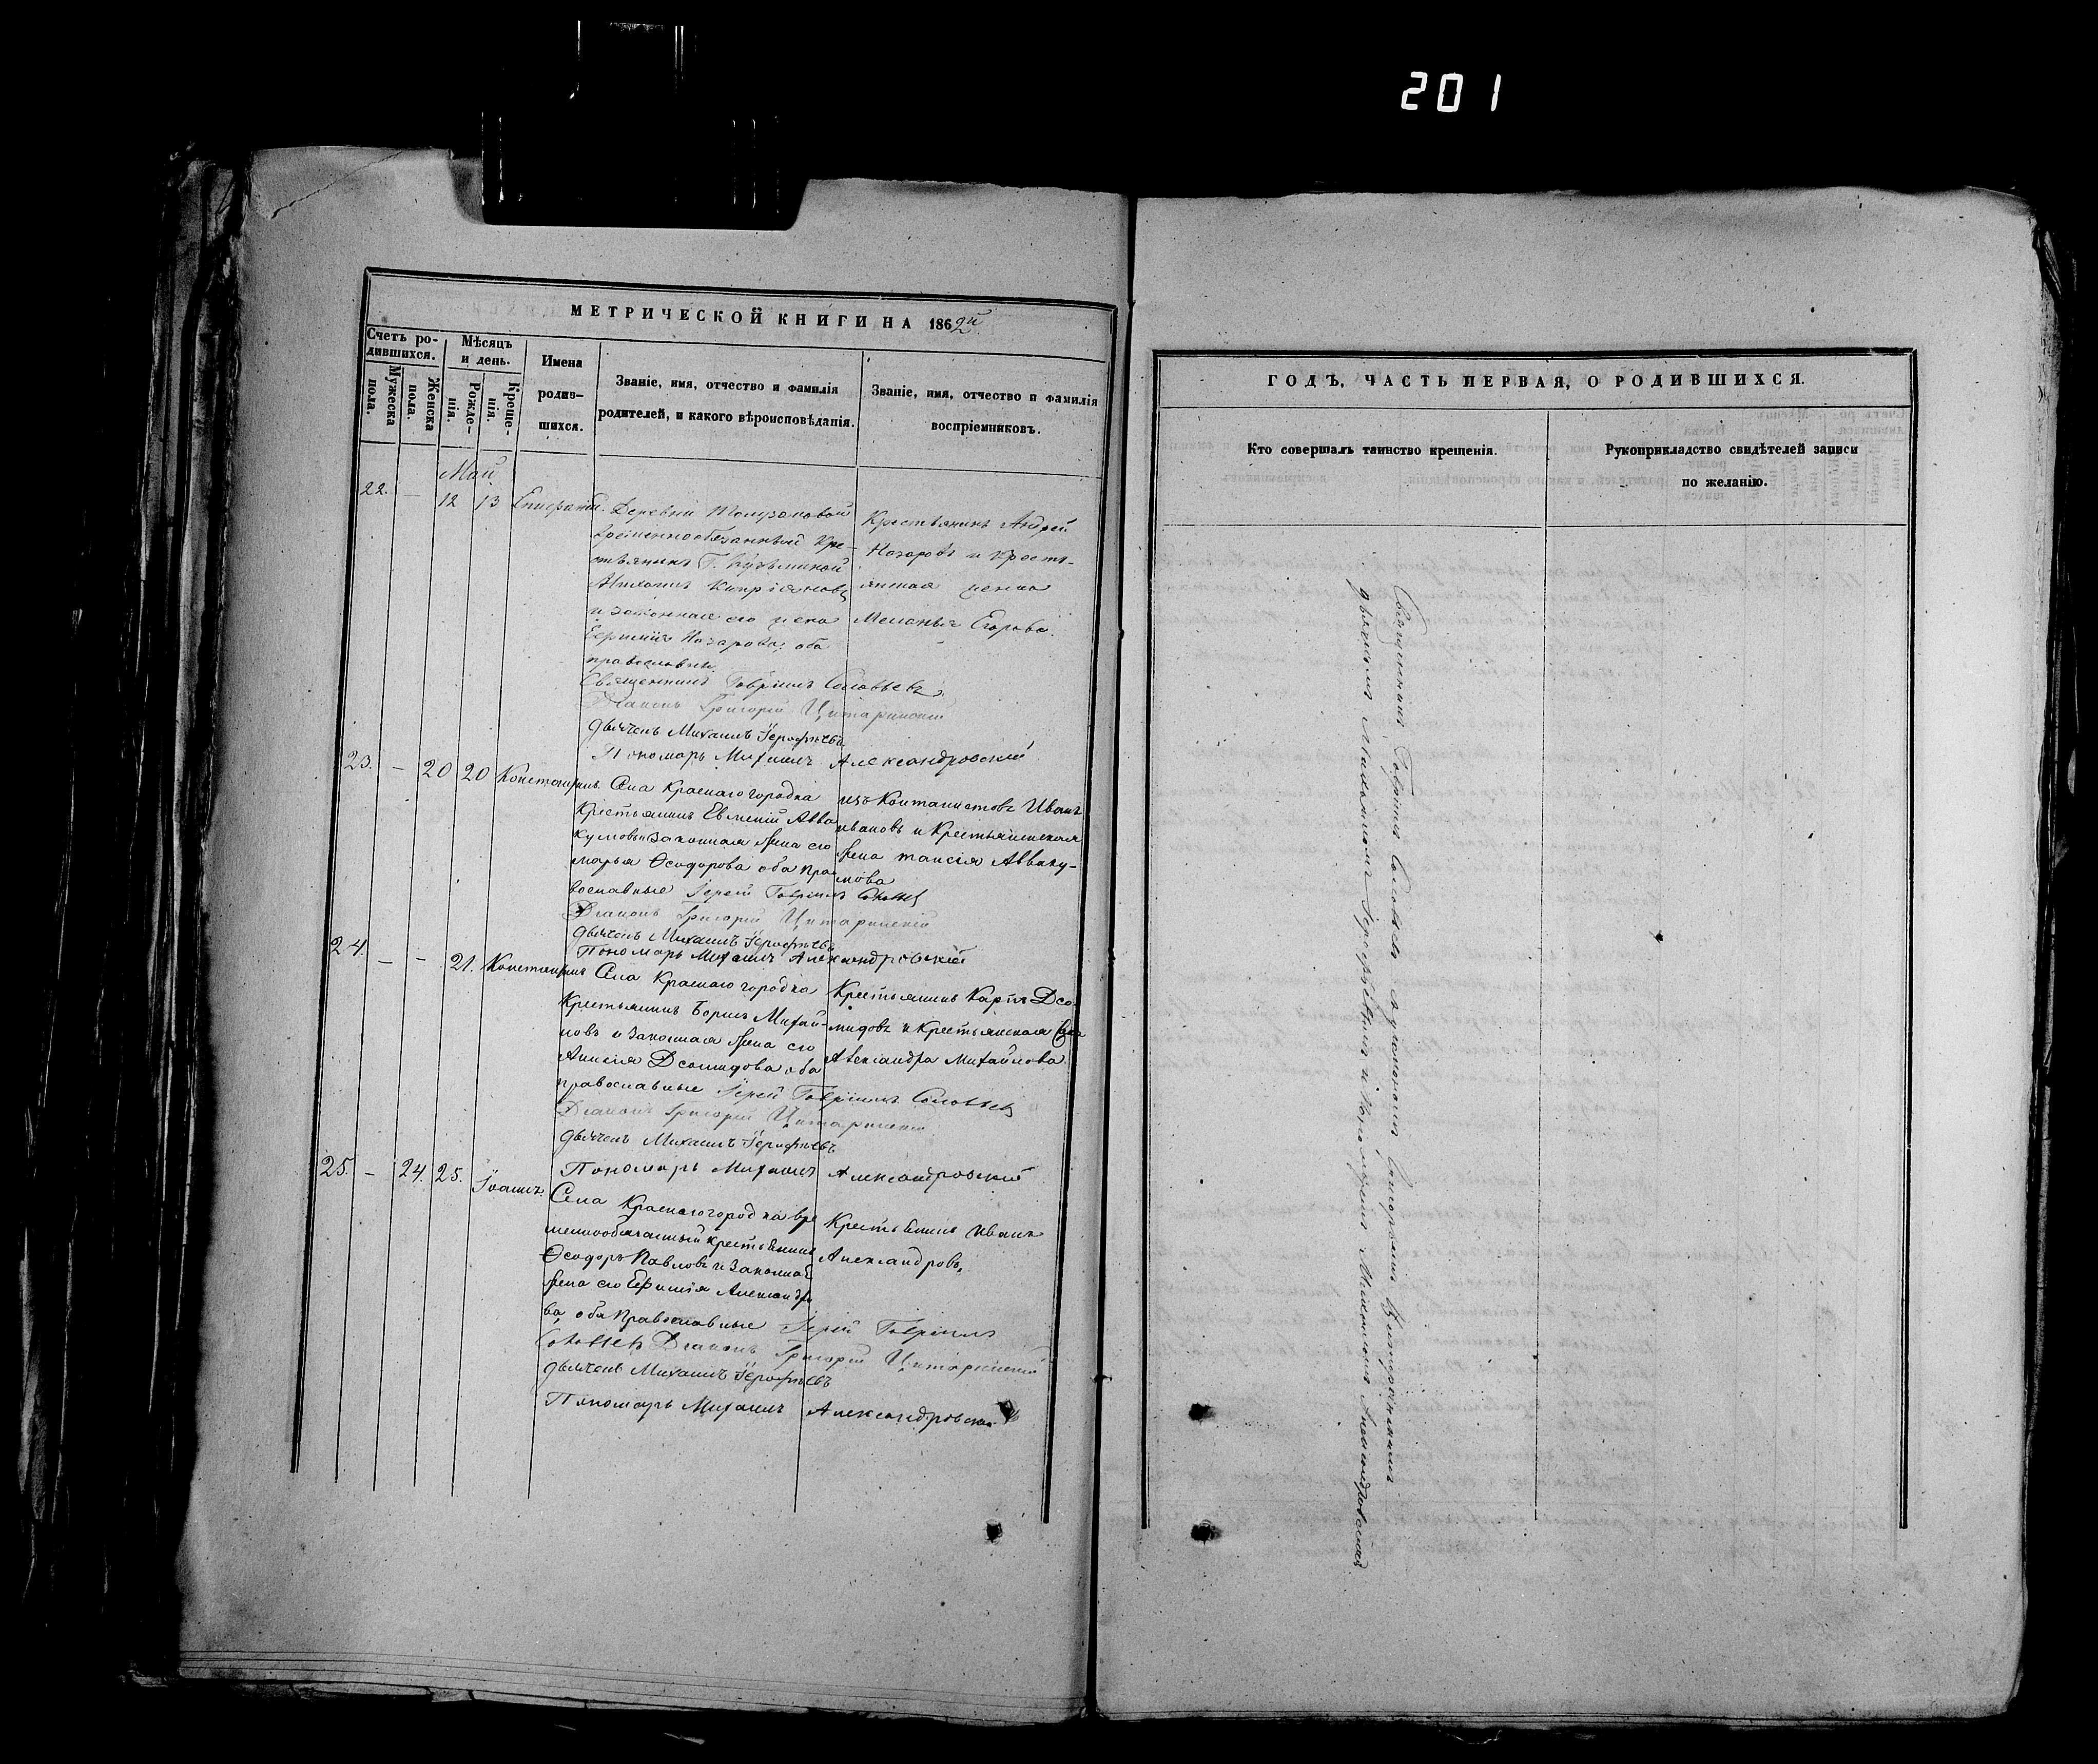 201
МЕТРИЧЕСКОЙ КНИГИ НА 1862й
Счетъ ро-
дившихся.
Мужеска
пола.
Женска
пола.
Мѣсяцъ
и день.
Рожде-
нія.
Креще-
нія.
Имена
родив-
шихся.
Званіе, имя, отчество и фамилія
родителей, и какого вѣроисповѣданія.
Званіе, имя, отчество и фамилія
воспріемниковъ.
Май
22. — 12 13
Деревни
временнообязанный Кре-
стьянинъ Г. Кузьминой
Михаилъ Кипріяновъ
и законная его жена
Назарова, оба
православные
Крестьянинъ Андрей
Назаровъ и Кресть-
янская жена
Меланья Егорова.
Священникъ Гавріилъ Соловьевъ
Діаконъ Григорій Цитаринскій
дьячекъ Михаилъ Іероѳѣевъ
Пономарь Михаилъ Александровскій
23. — 20 20 Константинъ
Села Краснаго городка
Крестьянинъ Евменій Авва-
кумовъ и законная жена его
марья Ѳеодорова оба пра-
вославные
изъ Кантанистовъ Иванъ
ивановъ и Крестьянская
жена таисія Авваку-
мова
Іерей Гавріилъ Соловьевъ
Діаконъ Григорій Цитаринскій
дьячекъ Михаилъ Іероѳѣевъ
Пономарь Михаилъ Александровскій
24. — — 21. Константинъ
Села Краснаго городка
Крестьянинъ Борисъ Михай-
ловъ и законная жена его
Анисія Дсомидова оба
православные
Крестьянинъ Карпъ Дсо-
мидовъ и Крестьянская
Александра Михайлова
Іерей Гавріилъ Соловьевъ
Діаконъ Григорій Цитаринскій
дьячекъ Михаилъ Іероѳѣевъ
Пономарь Михаилъ Александровскій
25. — 24. 25. Іоаннъ
Села Краснаго городка вре
меннообязанный крестьянинъ
Ѳеодоръ Павловъ и законная
жена его Ефимія Александро
ва, оба Православные
Крестьянинъ Иванъ
Александровъ,
Іерей Гавріилъ
Соловьевъ Діаконъ Григорій Цитаринскій
дьячекъ Михаилъ Іероѳѣевъ
Пономарь Михаилъ Александровскій
ГОДЪ, ЧАСТЬ ПЕРВАЯ, О РОДИВШИХСЯ.
Кто совершалъ таинство крещенія.
Рукоприкладство свидѣтелей записи
по желанію.
Священникъ Гавріилъ Соловьевъ съ діакономъ Григоріемъ Цитаринскимъ
дьячкомъ Михаиломъ Іероѳѣевымъ и Пономаремъ Михаиломъ Александровскимъ